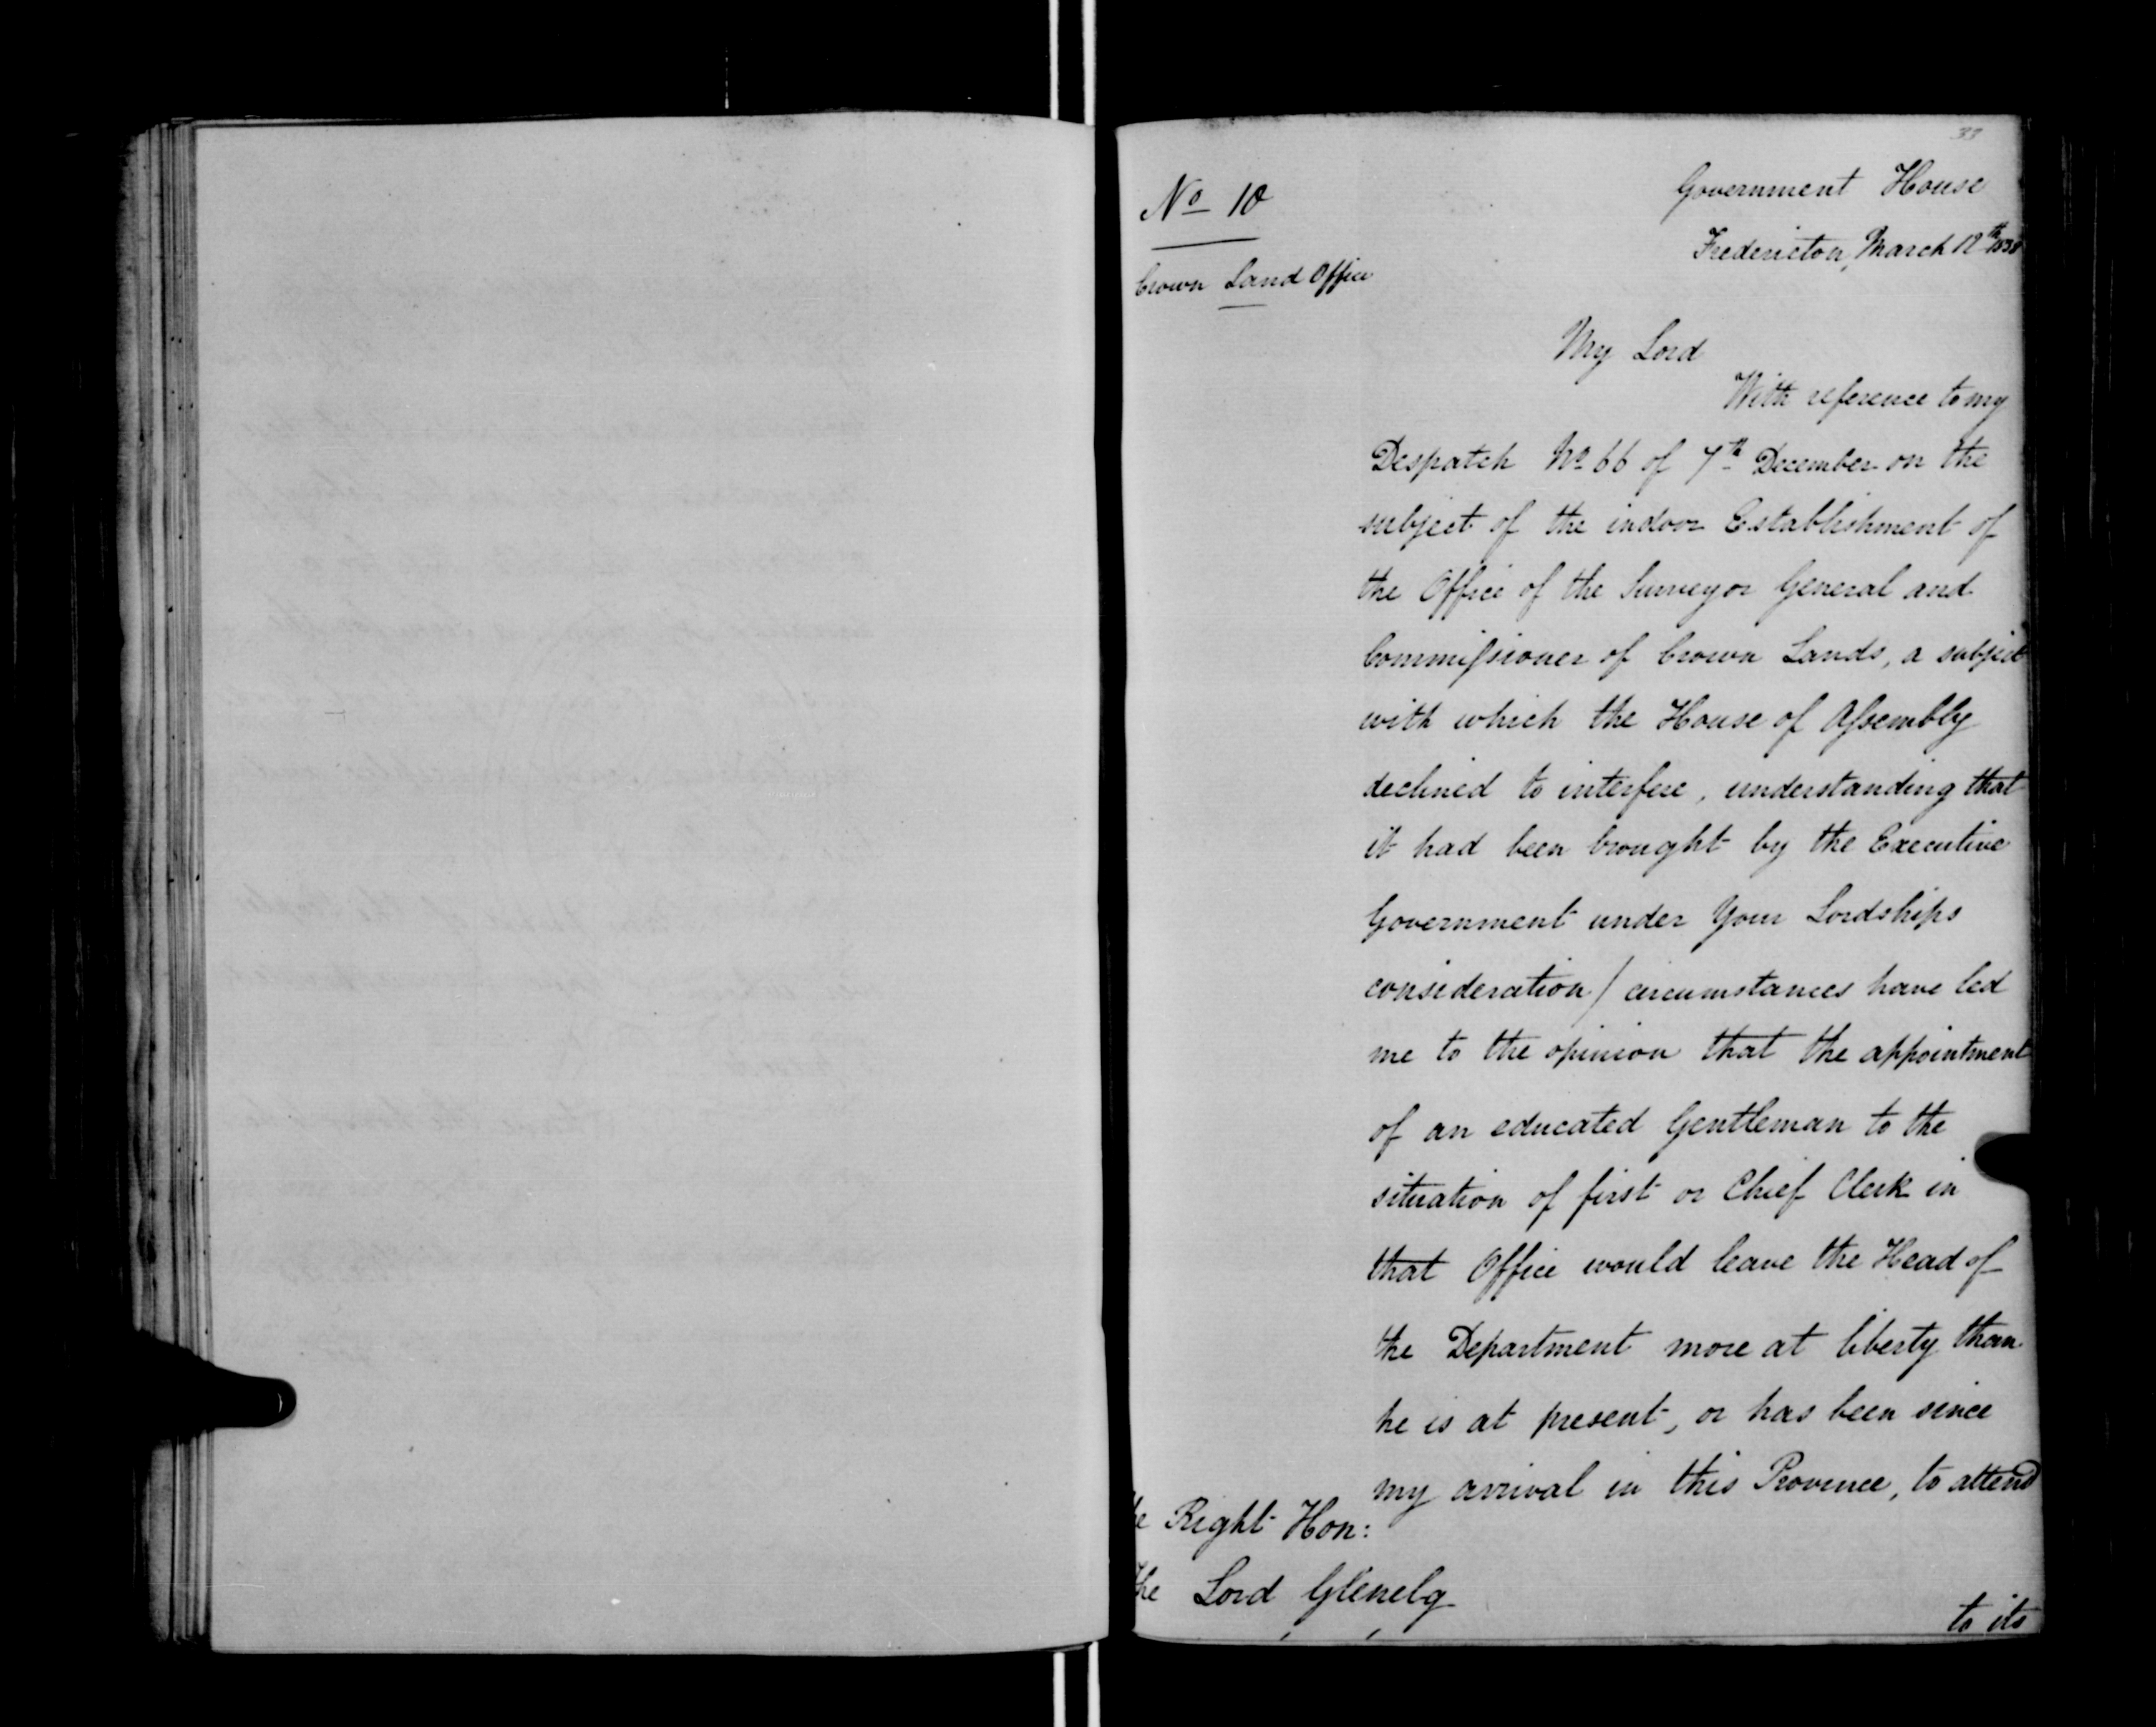 33
No 10
Government House
Fredericton, March 12th 1838
Crown Land Office
My Lord
With reference to my
Despatch No 66 of 7th December on the
subject of the indoor Establishment of
the Office of the Surveyor General and
Commissioner of Crown Lands, a subject
with which the House of Assembly
declined to interfere, understanding that
it had been brought by the Executive
Government under Your Lordships
consideration / circumstances have led
me to the opinion that the appointment
of an educated Gentleman to the
situation of first or Chief Clerk in
that Office would leave the Head of
the Department more at liberty than
he is at present, or has been since
my arrival in this Province, to attend
to its
The Right Hon:
The Lord Glenelg